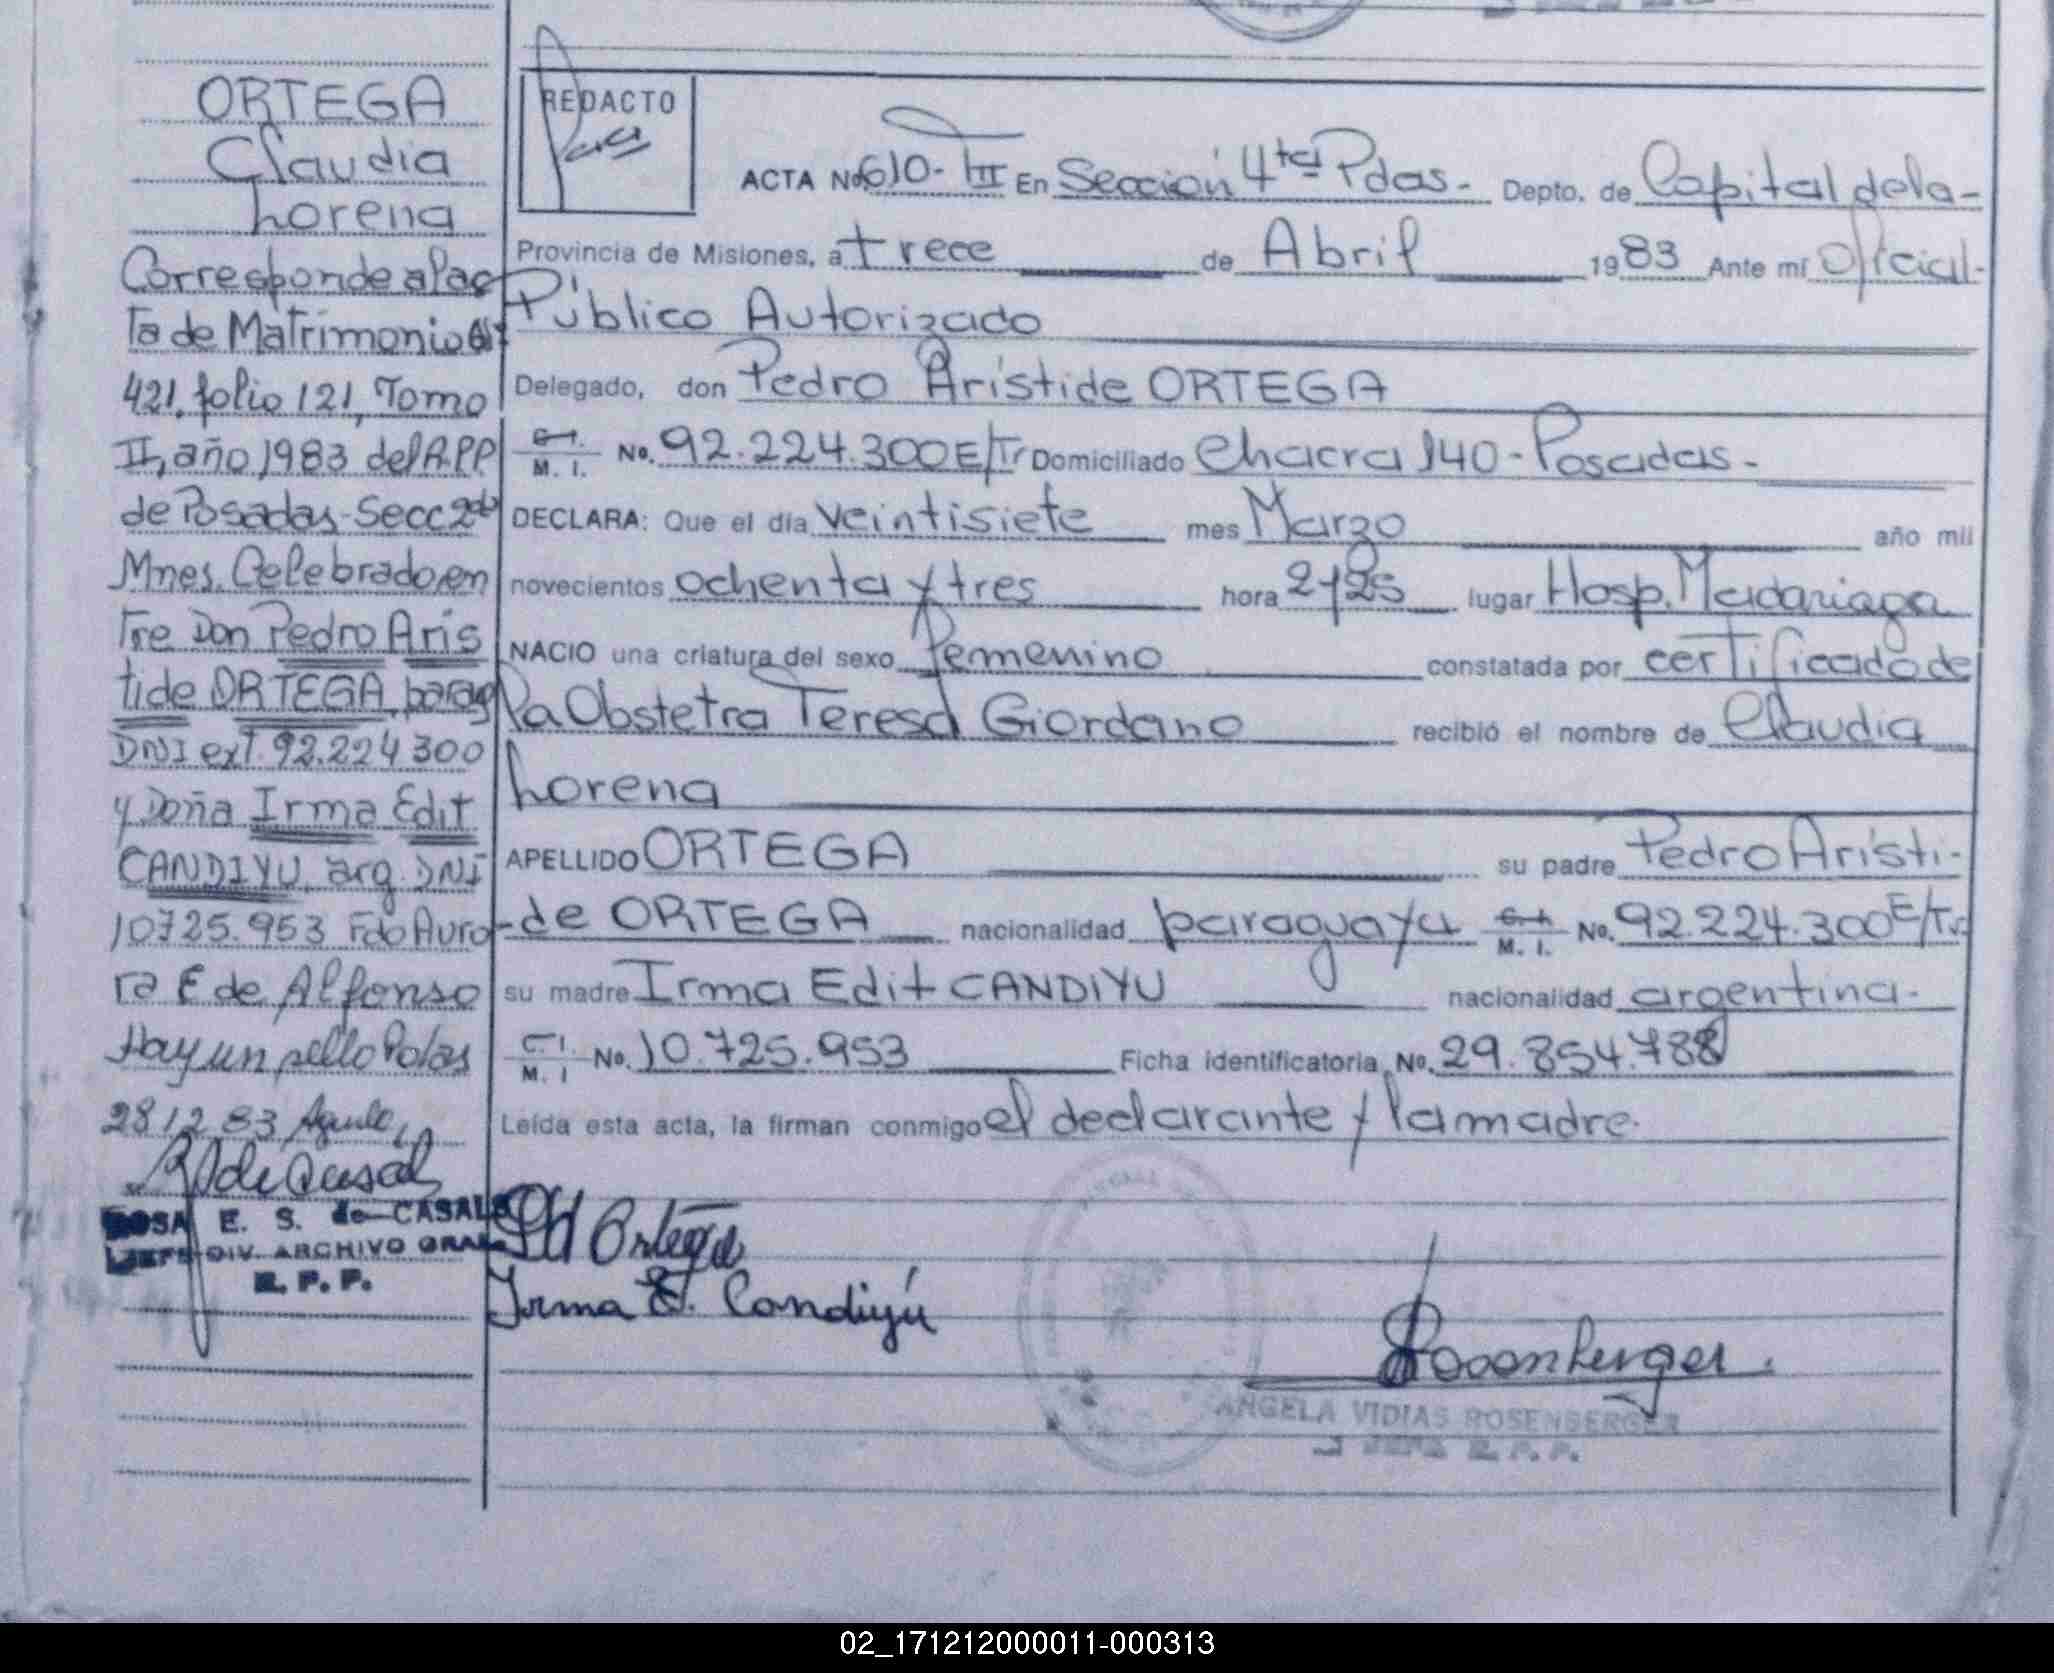 ORTEGA
Claudia
Lorena
Corresponde al ac
ta de Matrimonio
421, folio 121, Tomo
II, año 1983 del R.P.P.
de Posadas-Secc 2da
Mnes. Celebrado en
tre Don Pedro Aris
tide ORTEGA, parag
DNI ext. 92.224 300
y Doña Irma Edit
CANDIYU, arg. DNI
10725.953 Fdo Auro
ra E de Alfonso
Hay un sello
28 12 83
ROSA E. S. de CASALS
JEFE DIV. ARCHIVO GRAL
R. P. P.
REDACTO
ACTA No 610- TIII En Sección 4ta Pdas.- Depto. de Capital de la-
Provincia de Misiones, a trece de Abril 1983 Ante mí Oficial-
Público Autorizado
Delegado, don Pedro Arístide ORTEGA
C.I. M. I. No. 92.224.300E/Tr Domiciliado Chacra 140-Posadas-
DECLARA: Que el día veintisiete mes Marzo año mil
novecientos ochenta y tres hora lugar Hosp. Madariaga
NACIO una criatura del sexo femenino constatada por certificado de
la Obstetra Teresa Giordano recibió el nombre de Claudia
Lorena
APELLIDO ORTEGA su padre Pedro Arísti-
-de ORTEGA nacionalidad paraguaya C.I. M. I. No. 92.224.300E/Tr
su madre Irma Edit CANDIYU nacionalidad argentina-
C.I. M. I No. 10.725.953 Ficha identificatoria No. 29.854.788
Leída esta acta, la firman conmigo el declarante y la madre.
Ortega
Irma E. Candiyú
Rosenberger
ANGELA VIDIAS ROSENBERGER
JEFE R. P. P.
02_171212000011-000313